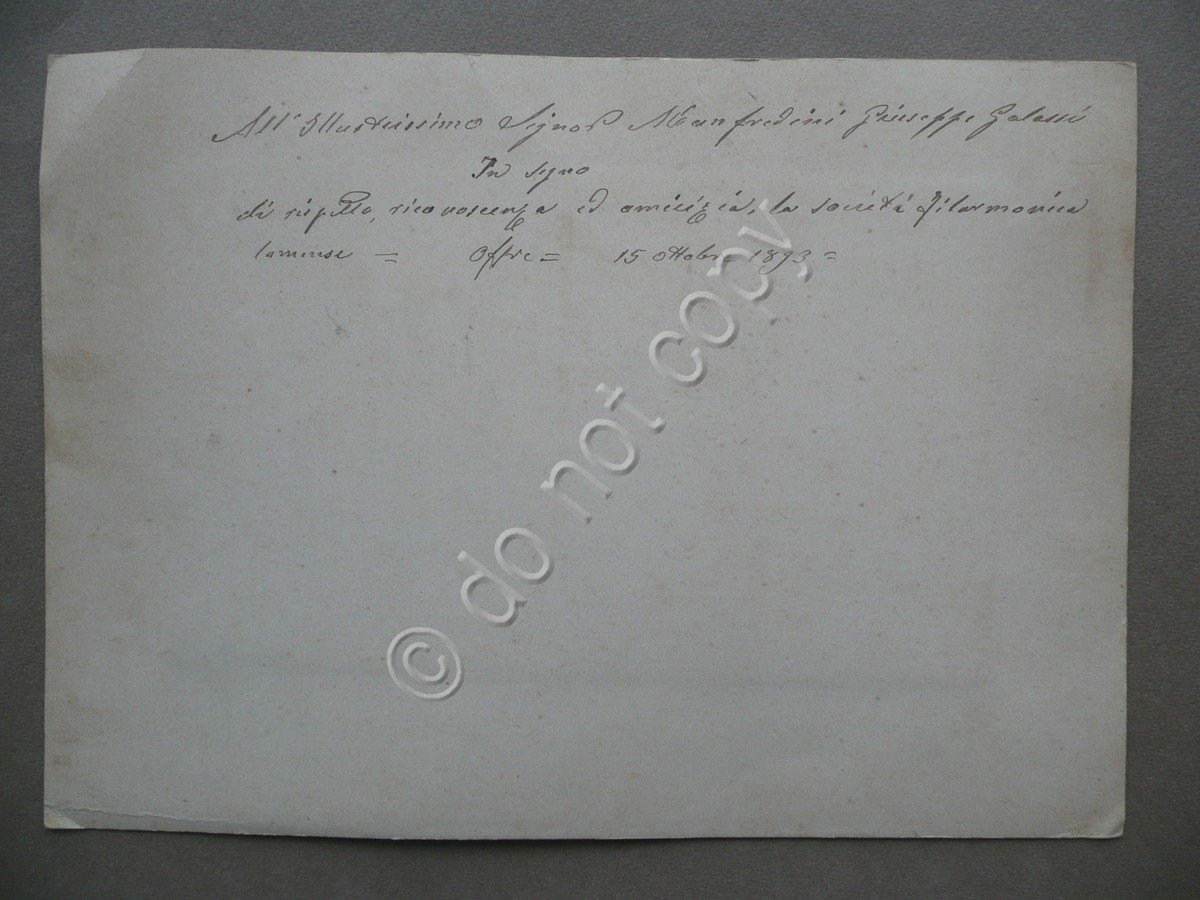 All' Illustrissimo Signor Manfredini Giuseppe Galassi
In segno
di rispetto, riconoscenza ed amicizia, la società Filarmonica
lamense = Offre = 15 ottobre 1893 =
© do not copy